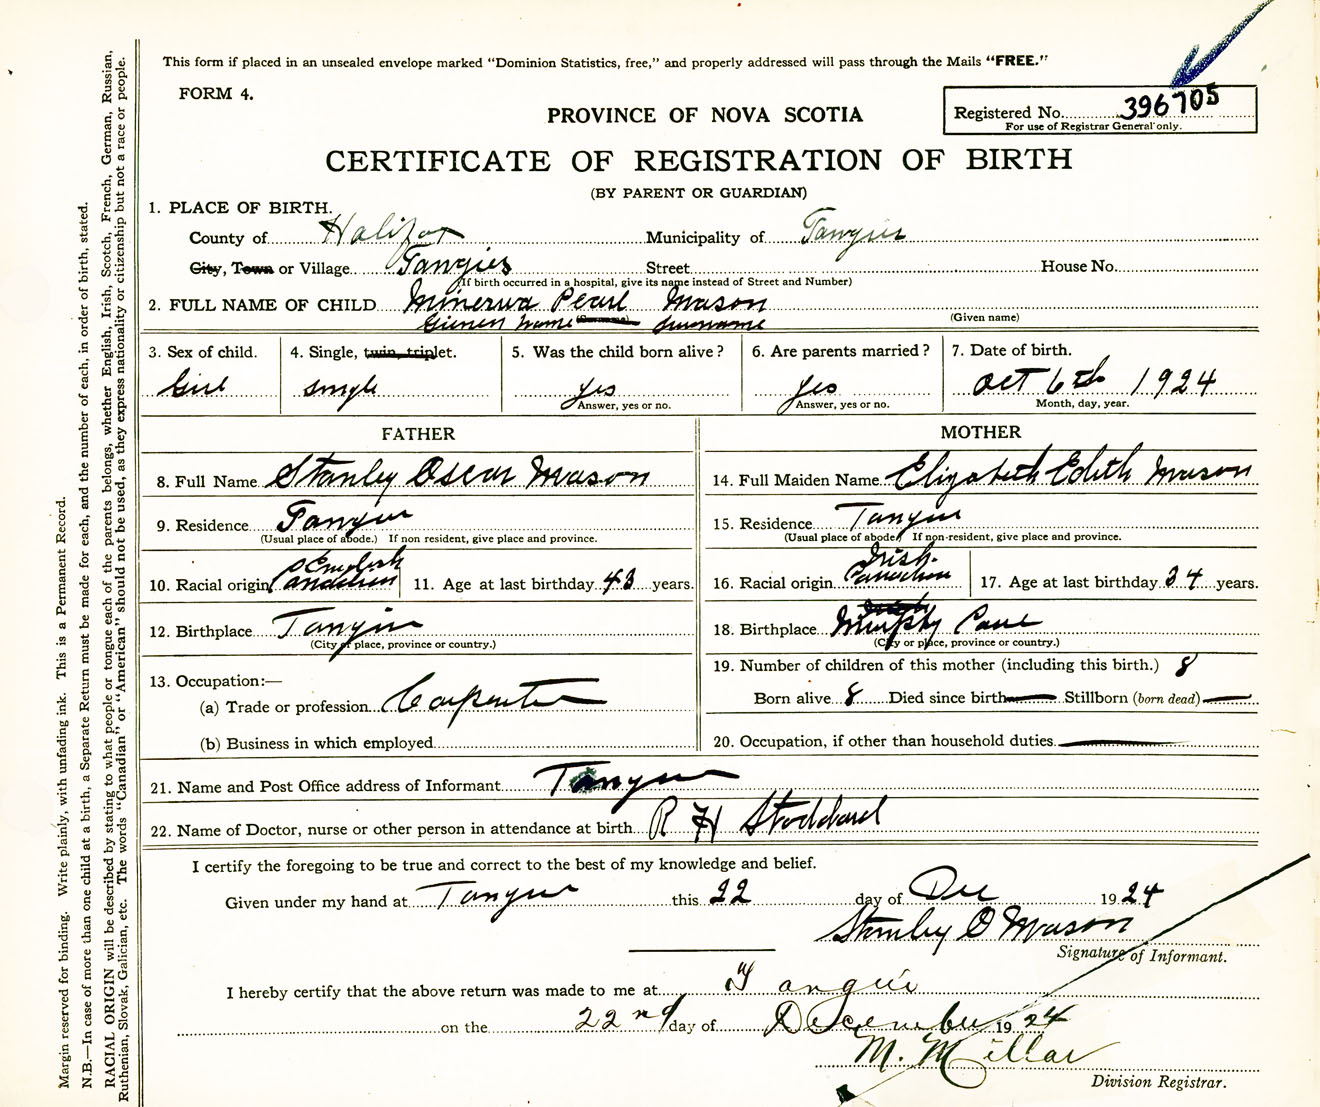 This form if placed in an unsealed envelope marked "Dominion Statistics, free," and properly addressed will pass through the Mails "FREE."
FORM 4.
PROVINCE OF NOVA SCOTIA
Registered No. 396705
For use of Registrar General only.
CERTIFICATE OF REGISTRATION OF BIRTH
(BY PARENT OR GUARDIAN)
1. PLACE OF BIRTH.
County of Halifax Municipality of Tangier
City, Town or Village. Tangier Street House No.
(If birth occurred in a hospital, give its name instead of Street and Number)
2. FULL NAME OF CHILD Minerva Pearl Mason
Given name (Surname) surname (Given name)
3. Sex of child. 4. Single, twin, triplet. 5. Was the child born alive? 6. Are parents married? 7. Date of birth.
Girl single yes yes Oct 6th 1924
Answer, yes or no. Answer, yes or no. Month, day, year.
FATHER MOTHER
8. Full Name Stanley Oscar Mason 14. Full Maiden Name Elizabeth Edith Mason
9. Residence Tangier 15. Residence Tangier
(Usual place of abode.) If non resident, give place and province. (Usual place of abode) If non-resident, give place and province.
English Irish
10. Racial origin Canadian 11. Age at last birthday 43 years. 16. Racial origin Canadian 17. Age at last birthday 34 years.
12. Birthplace Tangier 18. Birthplace Murphy Cove
(City or place, province or country.) (City or place, province or country.)
13. Occupation:— 19. Number of children of this mother (including this birth.) 8
(a) Trade or profession Carpenter Born alive 8 Died since birth Stillborn (born dead)
(b) Business in which employed 20. Occupation, if other than household duties.
21. Name and Post Office address of Informant. Tangier
22. Name of Doctor, nurse or other person in attendance at birth. R H Stoddard
I certify the foregoing to be true and correct to the best of my knowledge and belief.
Given under my hand at Tangier this 22 day of Dec 1924
Stanley O Mason
Signature of Informant.
I hereby certify that the above return was made to me at Tangier
on the 22nd day of December 1924
M. Millar
Division Registrar.
Margin reserved for binding. Write plainly, with unfading ink. This is a Permanent Record.
N.B.—In case of more than one child at a birth, a Separate Return must be made for each, and the number of each, in order of birth, stated.
RACIAL ORIGIN will be described by stating to what people or tongue each of the parents belongs, whether English, Irish, Scotch, French, German, Russian,
Ruthenian, Slovak, Galician, etc. The words "Canadian" or "American" should not be used, as they express nationality or citizenship but not a race or people.